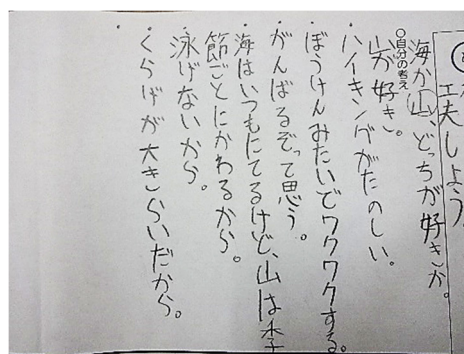 工夫しよう。
海か山、どっちが好きか。
○自分の考え
山が好き。
・ハイキングがたのしい。
・ぼうけんみたいでワクワクする。
・がんばるぞって思う。
・海はいつもにてるけど、山は季
節ごとにかわるから。
・泳げないから。
・くらげが大きらいだから。